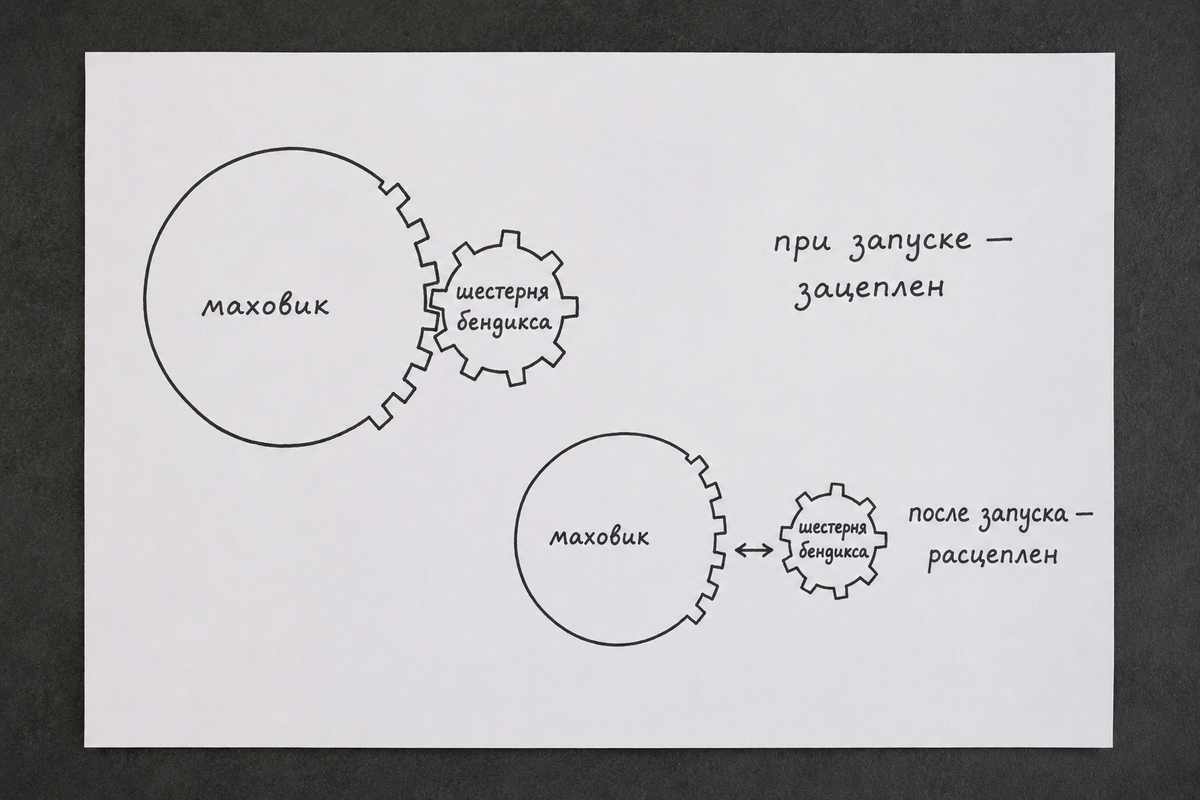 маховик
шестерня
бендикса
при запуске —
зацеплен
маховик
шестерня
бендикса
после запуска —
расцеплен